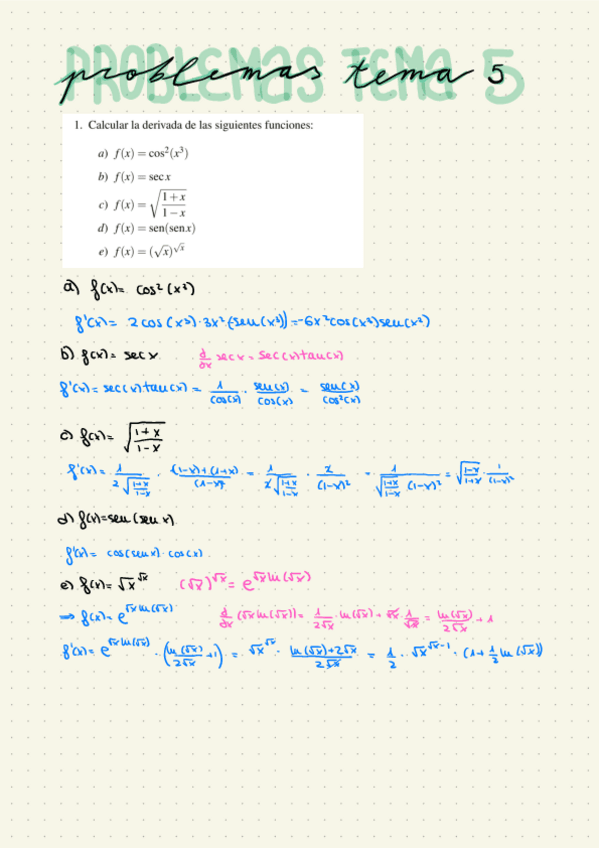 PROBLEMAS TEMA 5
problemas tema 5
1. Calcular la derivada de las siguientes funciones:
a) f(x) = cos²(x³)
b) f(x) = sec x
c) f(x) = √((1+x)/(1−x))
d) f(x) = sen(sen x)
e) f(x) = (√x)^√x
a) f(x) = cos²(x³)
f'(x) = 2cos(x³)·3x²(-sen(x³)) = -6x²cos(x³)sen(x³)
b) f(x) = sec x d/dx sec x = sec(x)tan(x)
f'(x) = sec(x)tan(x) = 1/cos(x) · sen(x)/cos(x) = sen(x)/cos²(x)
c) f(x) = √((1+x)/(1-x))
f'(x) = 1/(2√((1+x)/(1-x))) · ((1-x)+(1+x))/(1-x)² = 1/(2√((1+x)/(1-x))) · 2/(1-x)² = 1/(√((1+x)/(1-x)) (1-x)²) = √((1-x)/(1+x)) · 1/(1-x)²
d) f(x) = sen(sen x)
f'(x) = cos(sen x)·cos(x)
e) f(x) = √x^√x (√x)^√x = e^(√x ln(√x))
⇒ f(x) = e^(√x ln(√x)) d/dx (√x ln(√x)) = 1/(2√x) · ln(√x) + √x · 1/√x = ln(√x)/(2√x) + 1
f'(x) = e^(√x ln(√x)) · (ln(√x)/(2√x) + 1) = √x^√x · (ln(√x)+2√x)/(2√x) = 1/2 · √x^(√x-1) · (1+1/2 ln(√x))